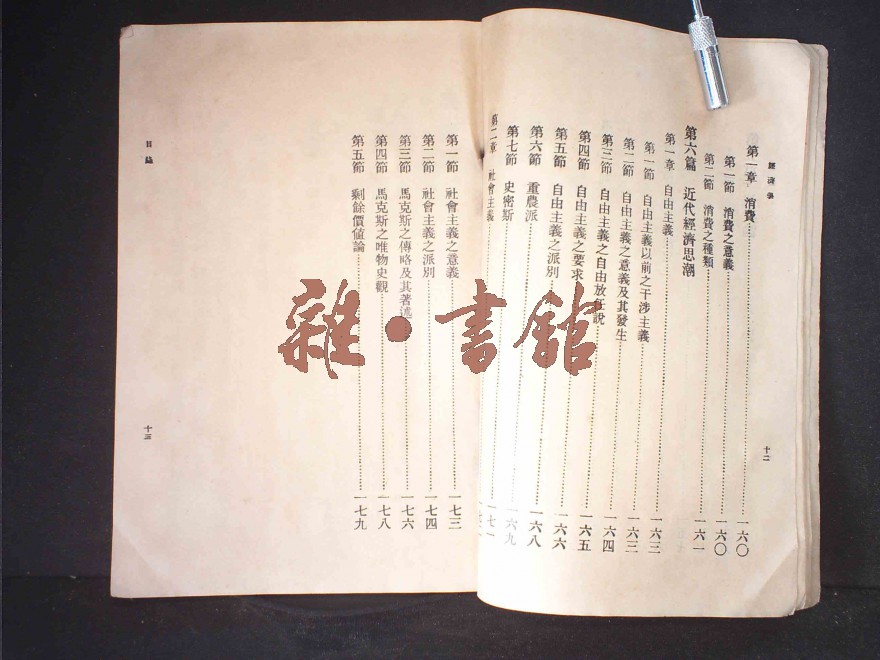 經濟學
第一章 消費……一六〇
第一節 消費之意義……一六〇
第二節 消費之種類……一六一
第六篇 近代經濟思潮
第一章 自由主義……一六三
第一節 自由主義以前之干涉主義……一六三
第二節 自由主義之意義及其發生……一六四
第三節 自由主義之自由放任說……一六五
第四節 自由主義之要求……一六六
第五節 自由主義之派別……一六八
第六節 重農派……一六九
第七節 史密斯……一七一
第二章 社會主義
十二
第一節 社會主義之意義……一七三
第二節 社會主義之派別……一七四
第三節 馬克斯之傳略及其著述……一七六
第四節 馬克斯之唯物史觀……一七八
第五節 剩餘價值論……一七九
目錄
十三
雜·書館